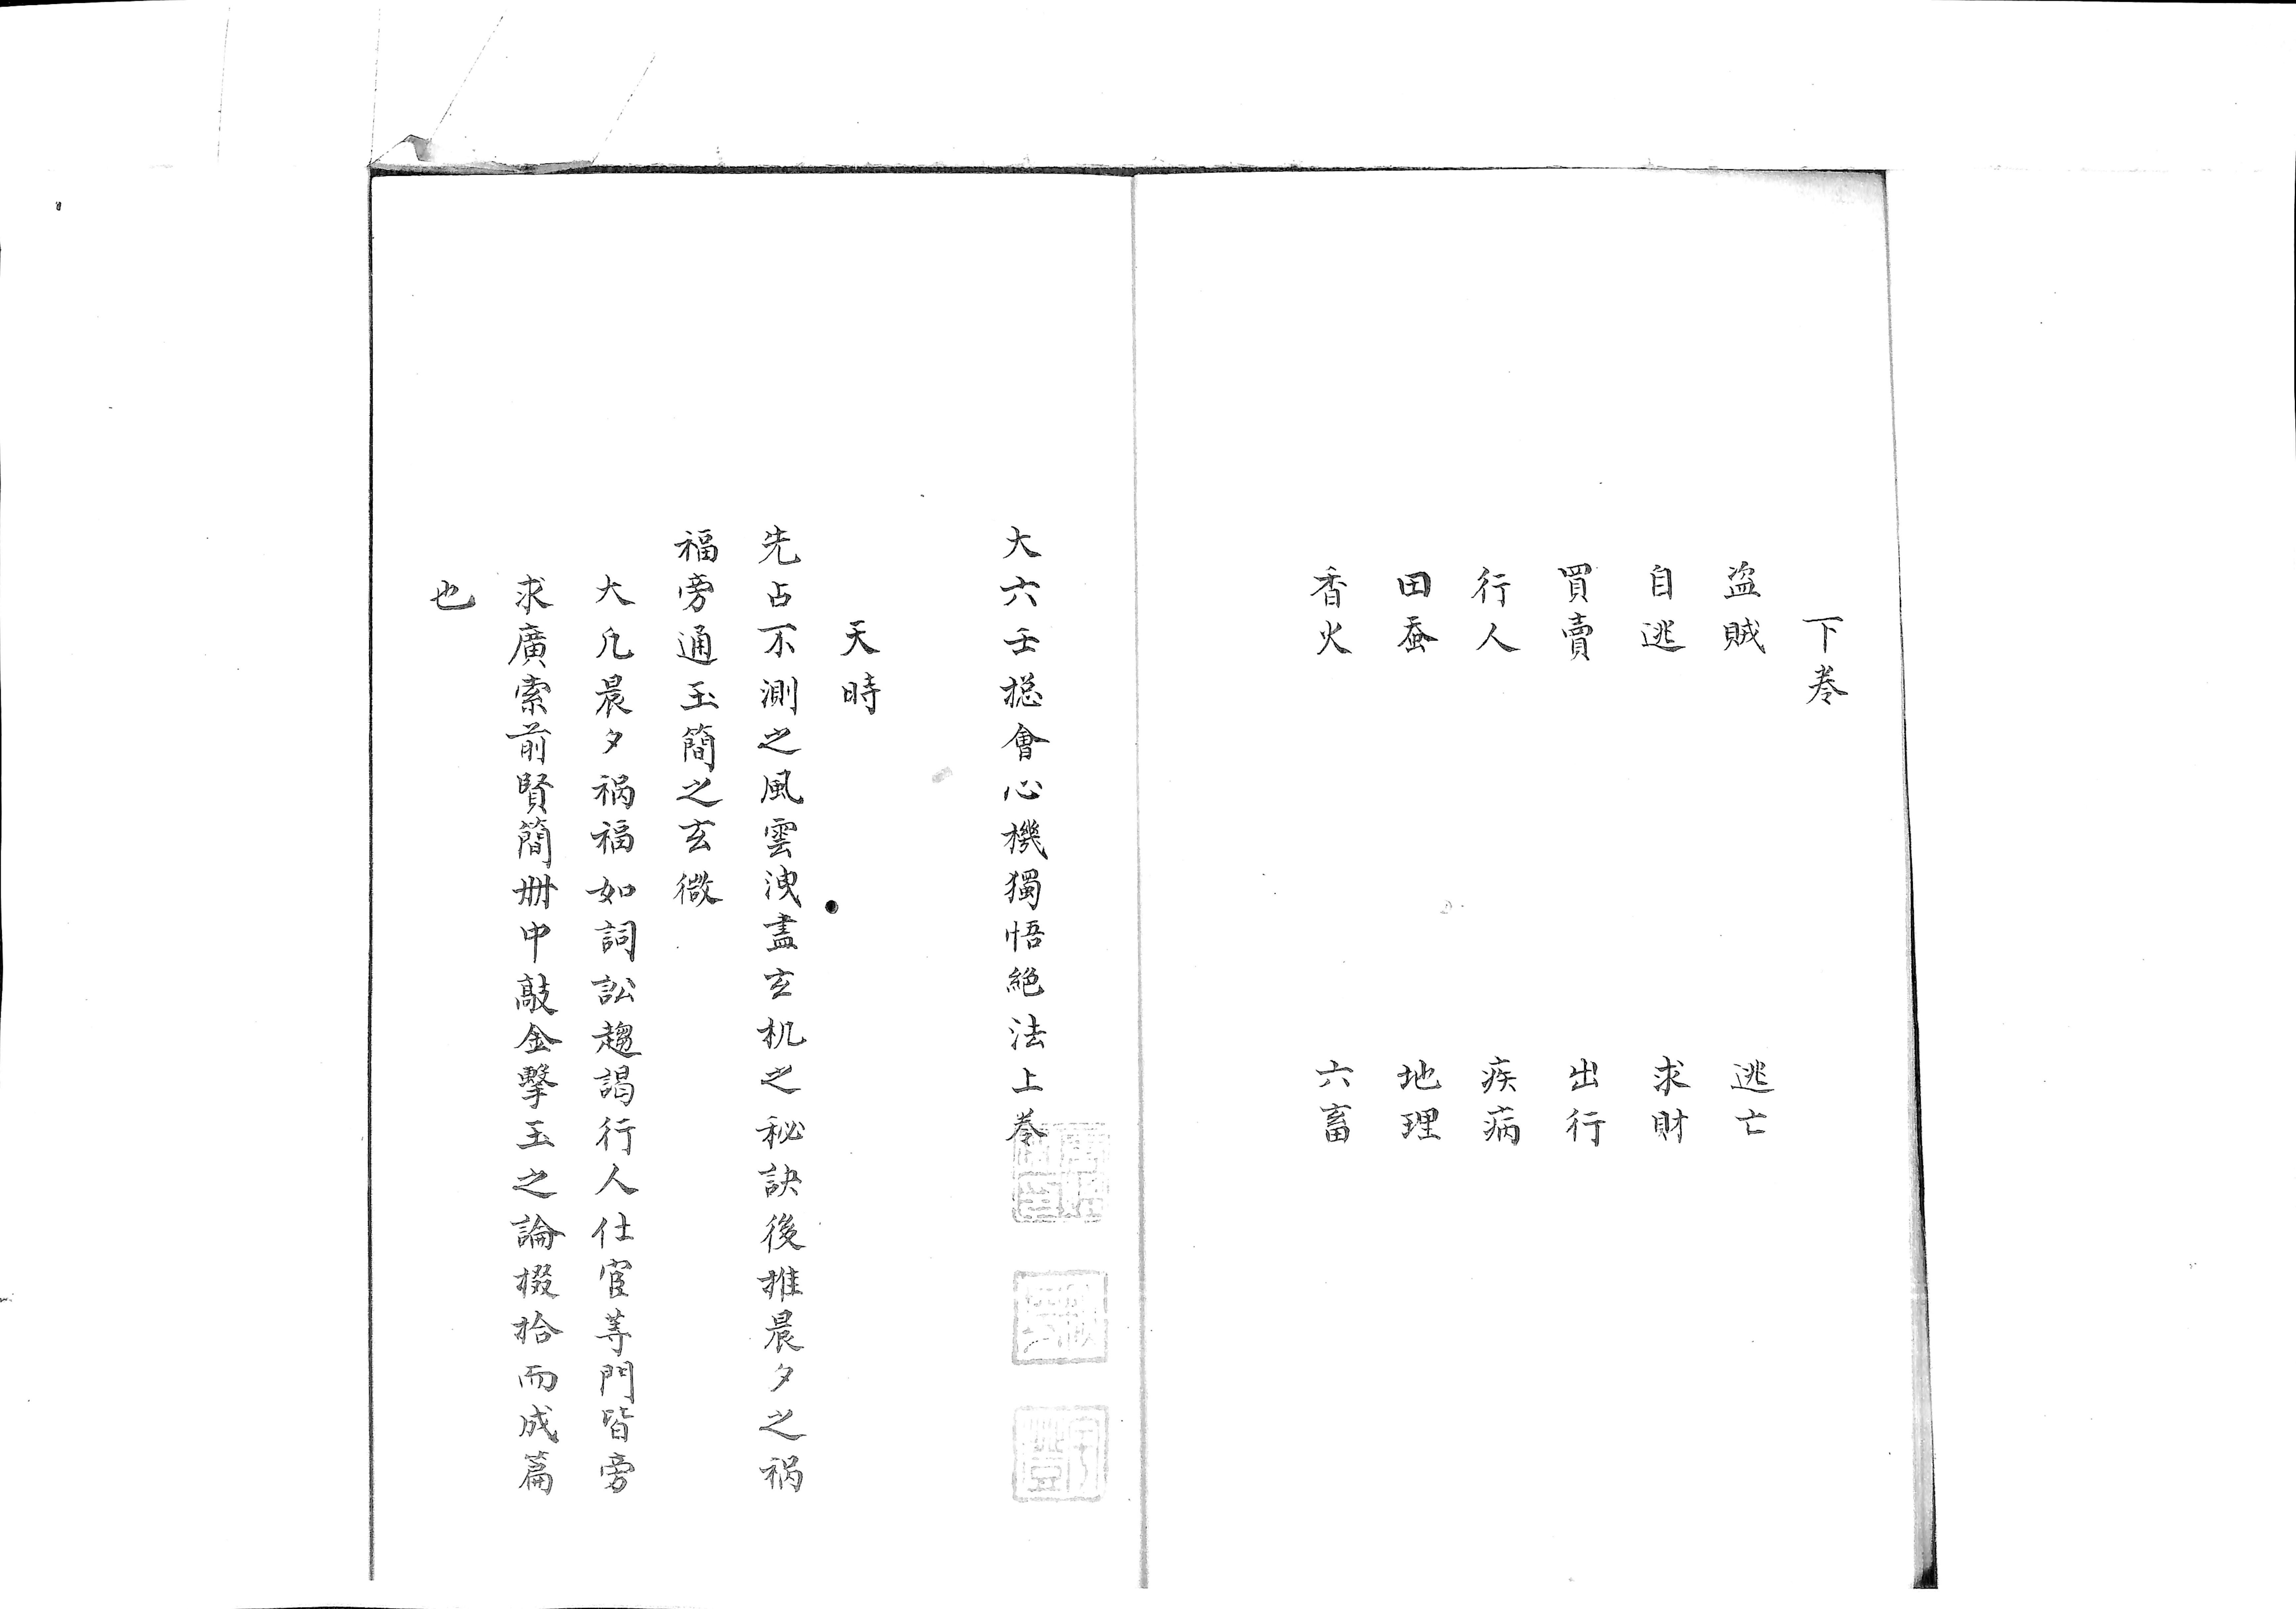 下巻
盗賊　逃亡
自逃　求財
買賣　出行
行人　疾病
田蚕　地理
香火　六畜
大六壬捴會心機獨悟絶法上巻
天時
先占不測之風雲洩盡玄机之秘訣後推晨夕之祸
福旁通玉簡之玄微
大凢晨夕祸福如詞訟趨謁行人仕宦等門皆旁
求廣索前賢簡册中敲金擊玉之論掇拾而成篇
也